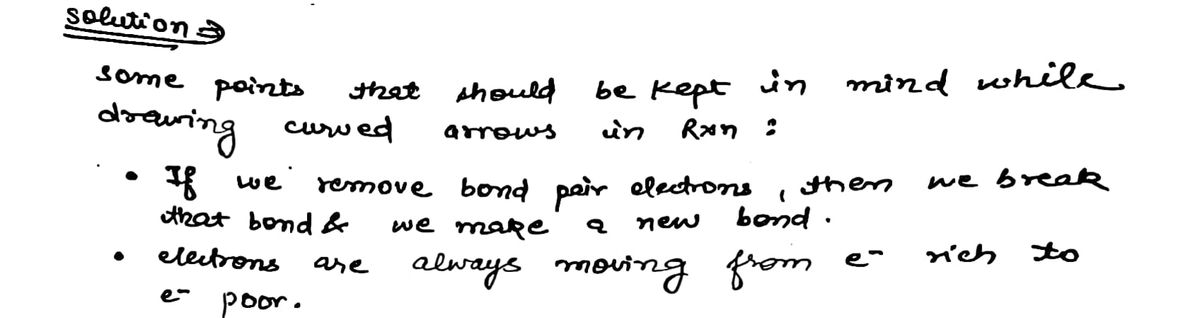 solution ⇒
some points that should be kept in mind while
drawing curved arrows in Rxn :
• If we remove bond pair electrons, then we break
that bond & we make a new bond.
• electrons are always moving from e⁻ rich to
e⁻ poor.